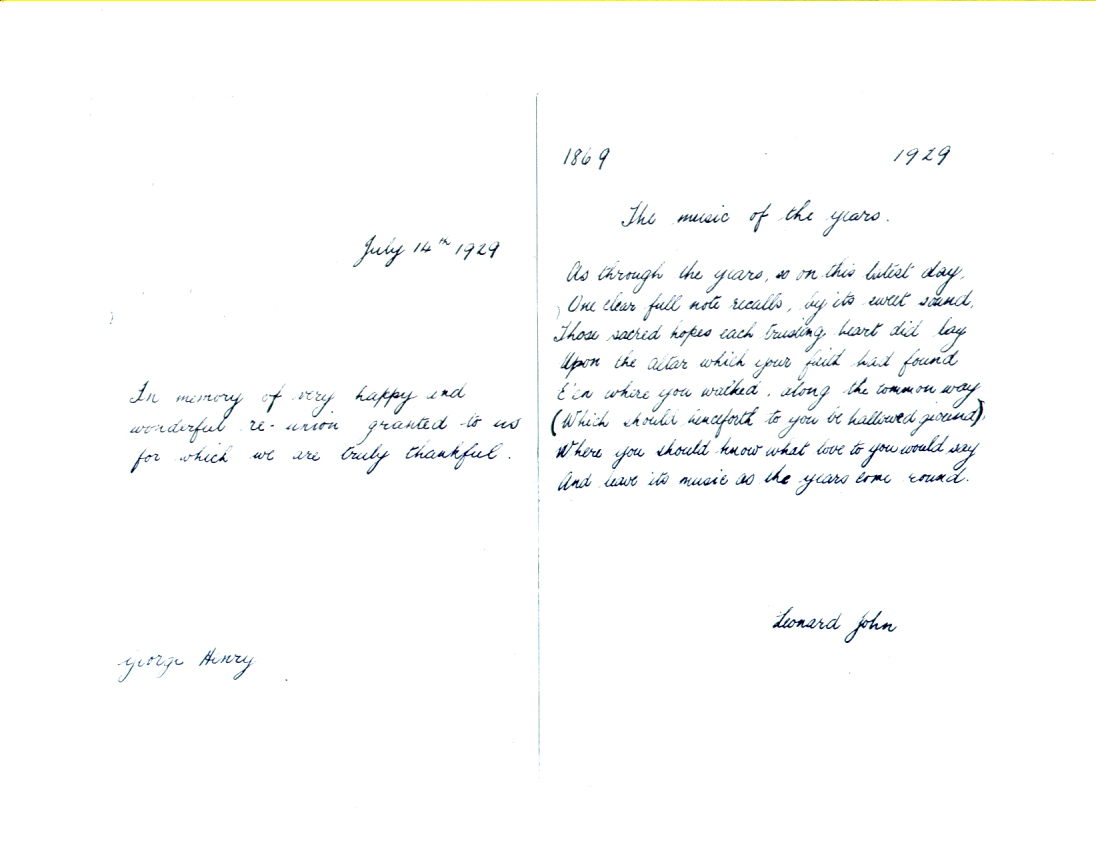 July 14th 1929
In memory of very happy and
wonderful re-union granted to us
for which we are truly thankful.
George Henry
1869 1929
The music of the years.
As through the years, so on this latest day,
One clear full note recalls, by its sweet sound,
Those sacred hopes each trusting heart did lay
Upon the altar which your faith had found
E'en where you walked, along the common way
(Which should henceforth to you be hallowed ground),
Where you should know what love to you would say
And leave its music as the years come round.
Leonard John